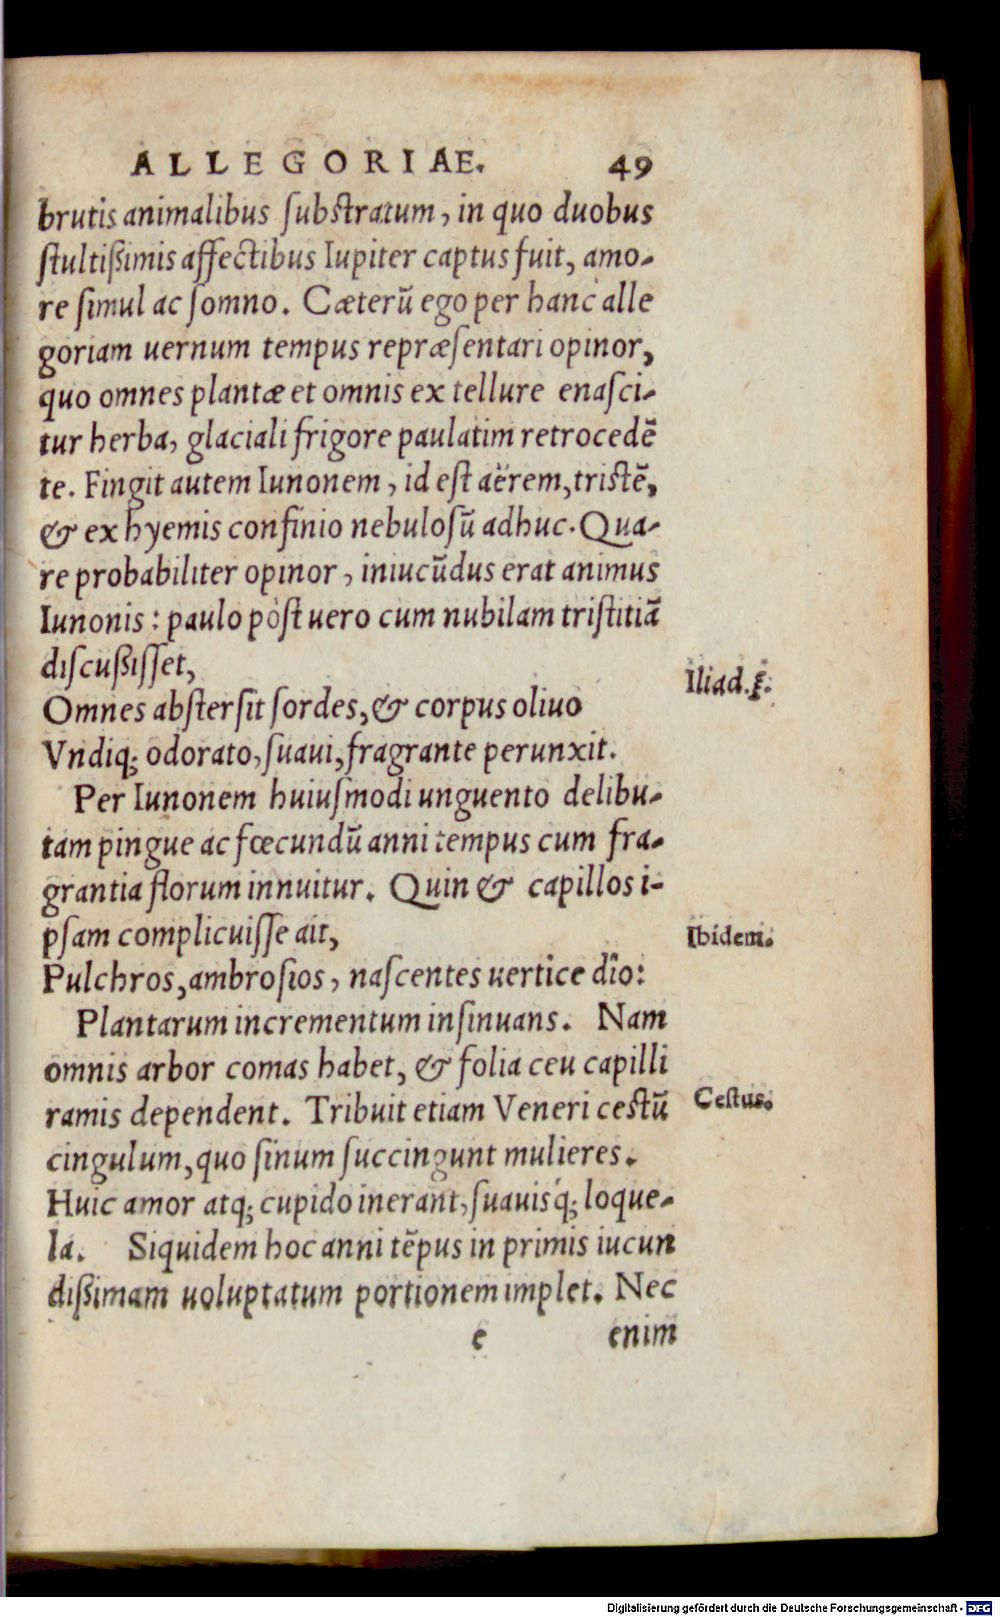 ALLEGORIAE. 49
brutis animalibus ſubſtratum, in quo duobus
ſtultißimis affectibus Iupiter captus fuit, amo-
re ſimul ac ſomno. Cæterũ ego per hanc alle
goriam uernum tempus repræſentari opinor,
quo omnes plantæ et omnis ex tellure enaſci-
tur herba, glaciali frigore paulatim retrocedẽ
te. Fingit autem Iunonem, id eſt aërem, triſtẽ,
& ex hyemis confinio nebuloſũ adhuc. Qua-
re probabiliter opinor, iniucũdus erat animus
Iunonis: paulo pòſt uero cum nubilam triſtitiã
diſcußiſſet,
Iliad. ξ.
Omnes abſterſit ſordes, & corpus oliuo
Vndiq; odorato, ſuaui, fragrante perunxit.
Per Iunonem huiuſmodi unguento delibu-
tam pingue ac fœcundũ anni tempus cum fra-
grantia florum innuitur. Quin & capillos i-
pſam complicuiſſe ait,
Ibidem.
Pulchros, ambroſios, naſcentes uertice dîo:
Plantarum incrementum inſinuans. Nam
omnis arbor comas habet, & folia ceu capilli
ramis dependent. Tribuit etiam Veneri ceſtũ
Ceſtus.
cingulum, quo ſinum ſuccingunt mulieres.
Huic amor atq; cupido inerant, ſuauisq́; loque-
la. Siquidem hoc anni tẽpus in primis iucun
dißimam uoluptatum portionem implet. Nec
e enim
Digitalisierung gefördert durch die Deutsche Forschungsgemeinschaft - DFG